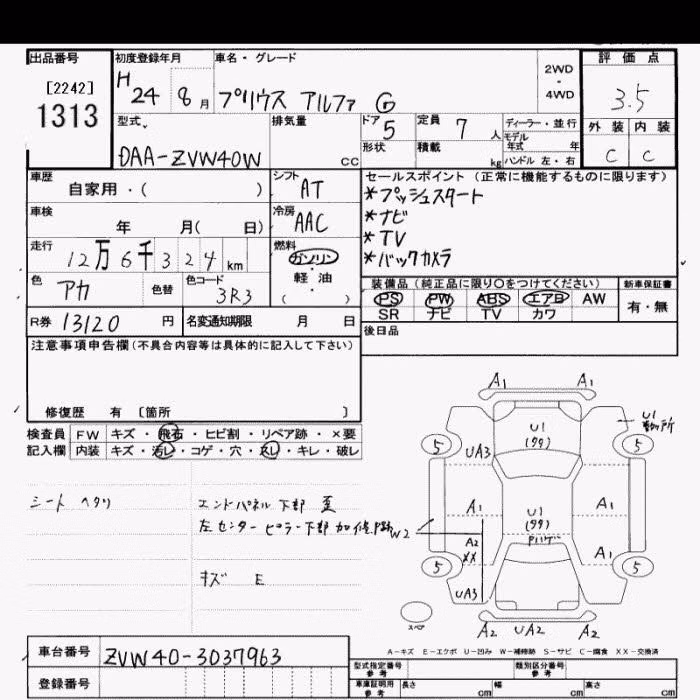 出品番号 初度登録年月 車名・グレード 2WD・4WD 評価点
[2242] 1313 H24 8月 プリウス アルファ G 3.5
型式 排気量 ドア 5 定員 7人 ディーラー・並行 外装 内装
DAA-ZVW40W cc 形状 積載 kg モデル年式 年 ハンドル 左・右 C C
車歴 自家用・( ) シフト AT セールスポイント(正常に機能するものに限ります)
*プッシュスタート
車検 年 月( 日) 冷房 AAC *ナビ
*TV
走行 12万6千324km 燃料 ガソリン・軽油( ) *バックカメラ
色 アカ 色替 色コード 3R3 装備品(純正品に限り○をつけてください) 新車保証書
PS PW ABS エアB AW 有・無
SR ナビ TV カワ
R券 13120円 名変通知期限 月 日 後日品
注意事項申告欄(不具合内容等は具体的に記入して下さい)
修復歴 有 [箇所 ]
検査員 FW キズ・飛石・ヒビ割・リペア跡・×要
記入欄 内装 キズ・汚レ・コゲ・穴・スレ・キレ・破レ
シート ヘタリ
エンドパネル下部 歪
左センターピラー下部 加修跡
キズ E
A1 A1
U1
U1 (99)
5 5
UA3
A1 U1 (99) A1
W2
A2 XX A1
5 5
UA3
スペア
A2 UA2 A2
A-キズ E-エクボ U-凹み W-補修跡 S-サビ C-腐食 XX-交換済
車台番号 ZVW40-3037963
型式指定番号 参考 類別区分番号 参考
登録番号 車庫証明用 参考 長さ cm 幅 cm 高さ cm